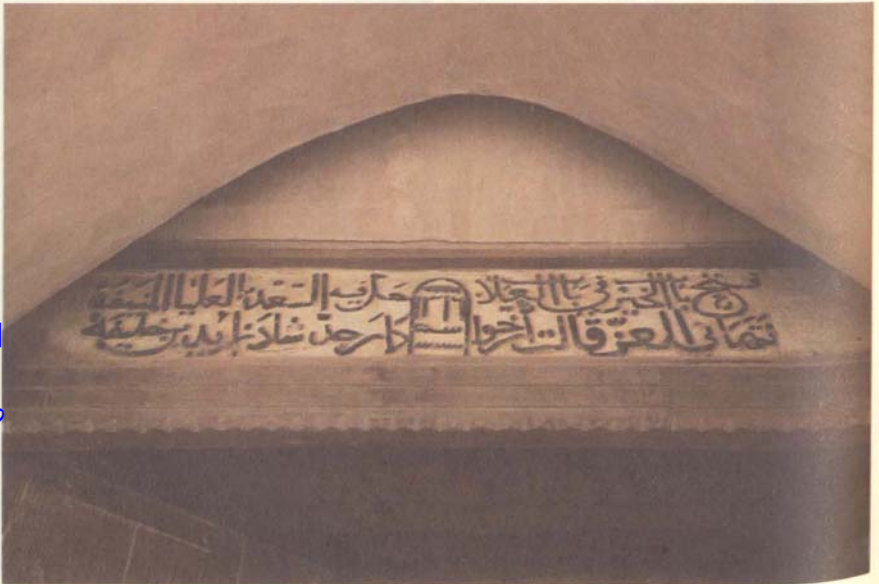 فتح باب الخير في باب العلا حل فيه السعد بالعليا المنيفة
تهاني العز قالت أرخوا سنة دار جد شاد زايد بن خليفه